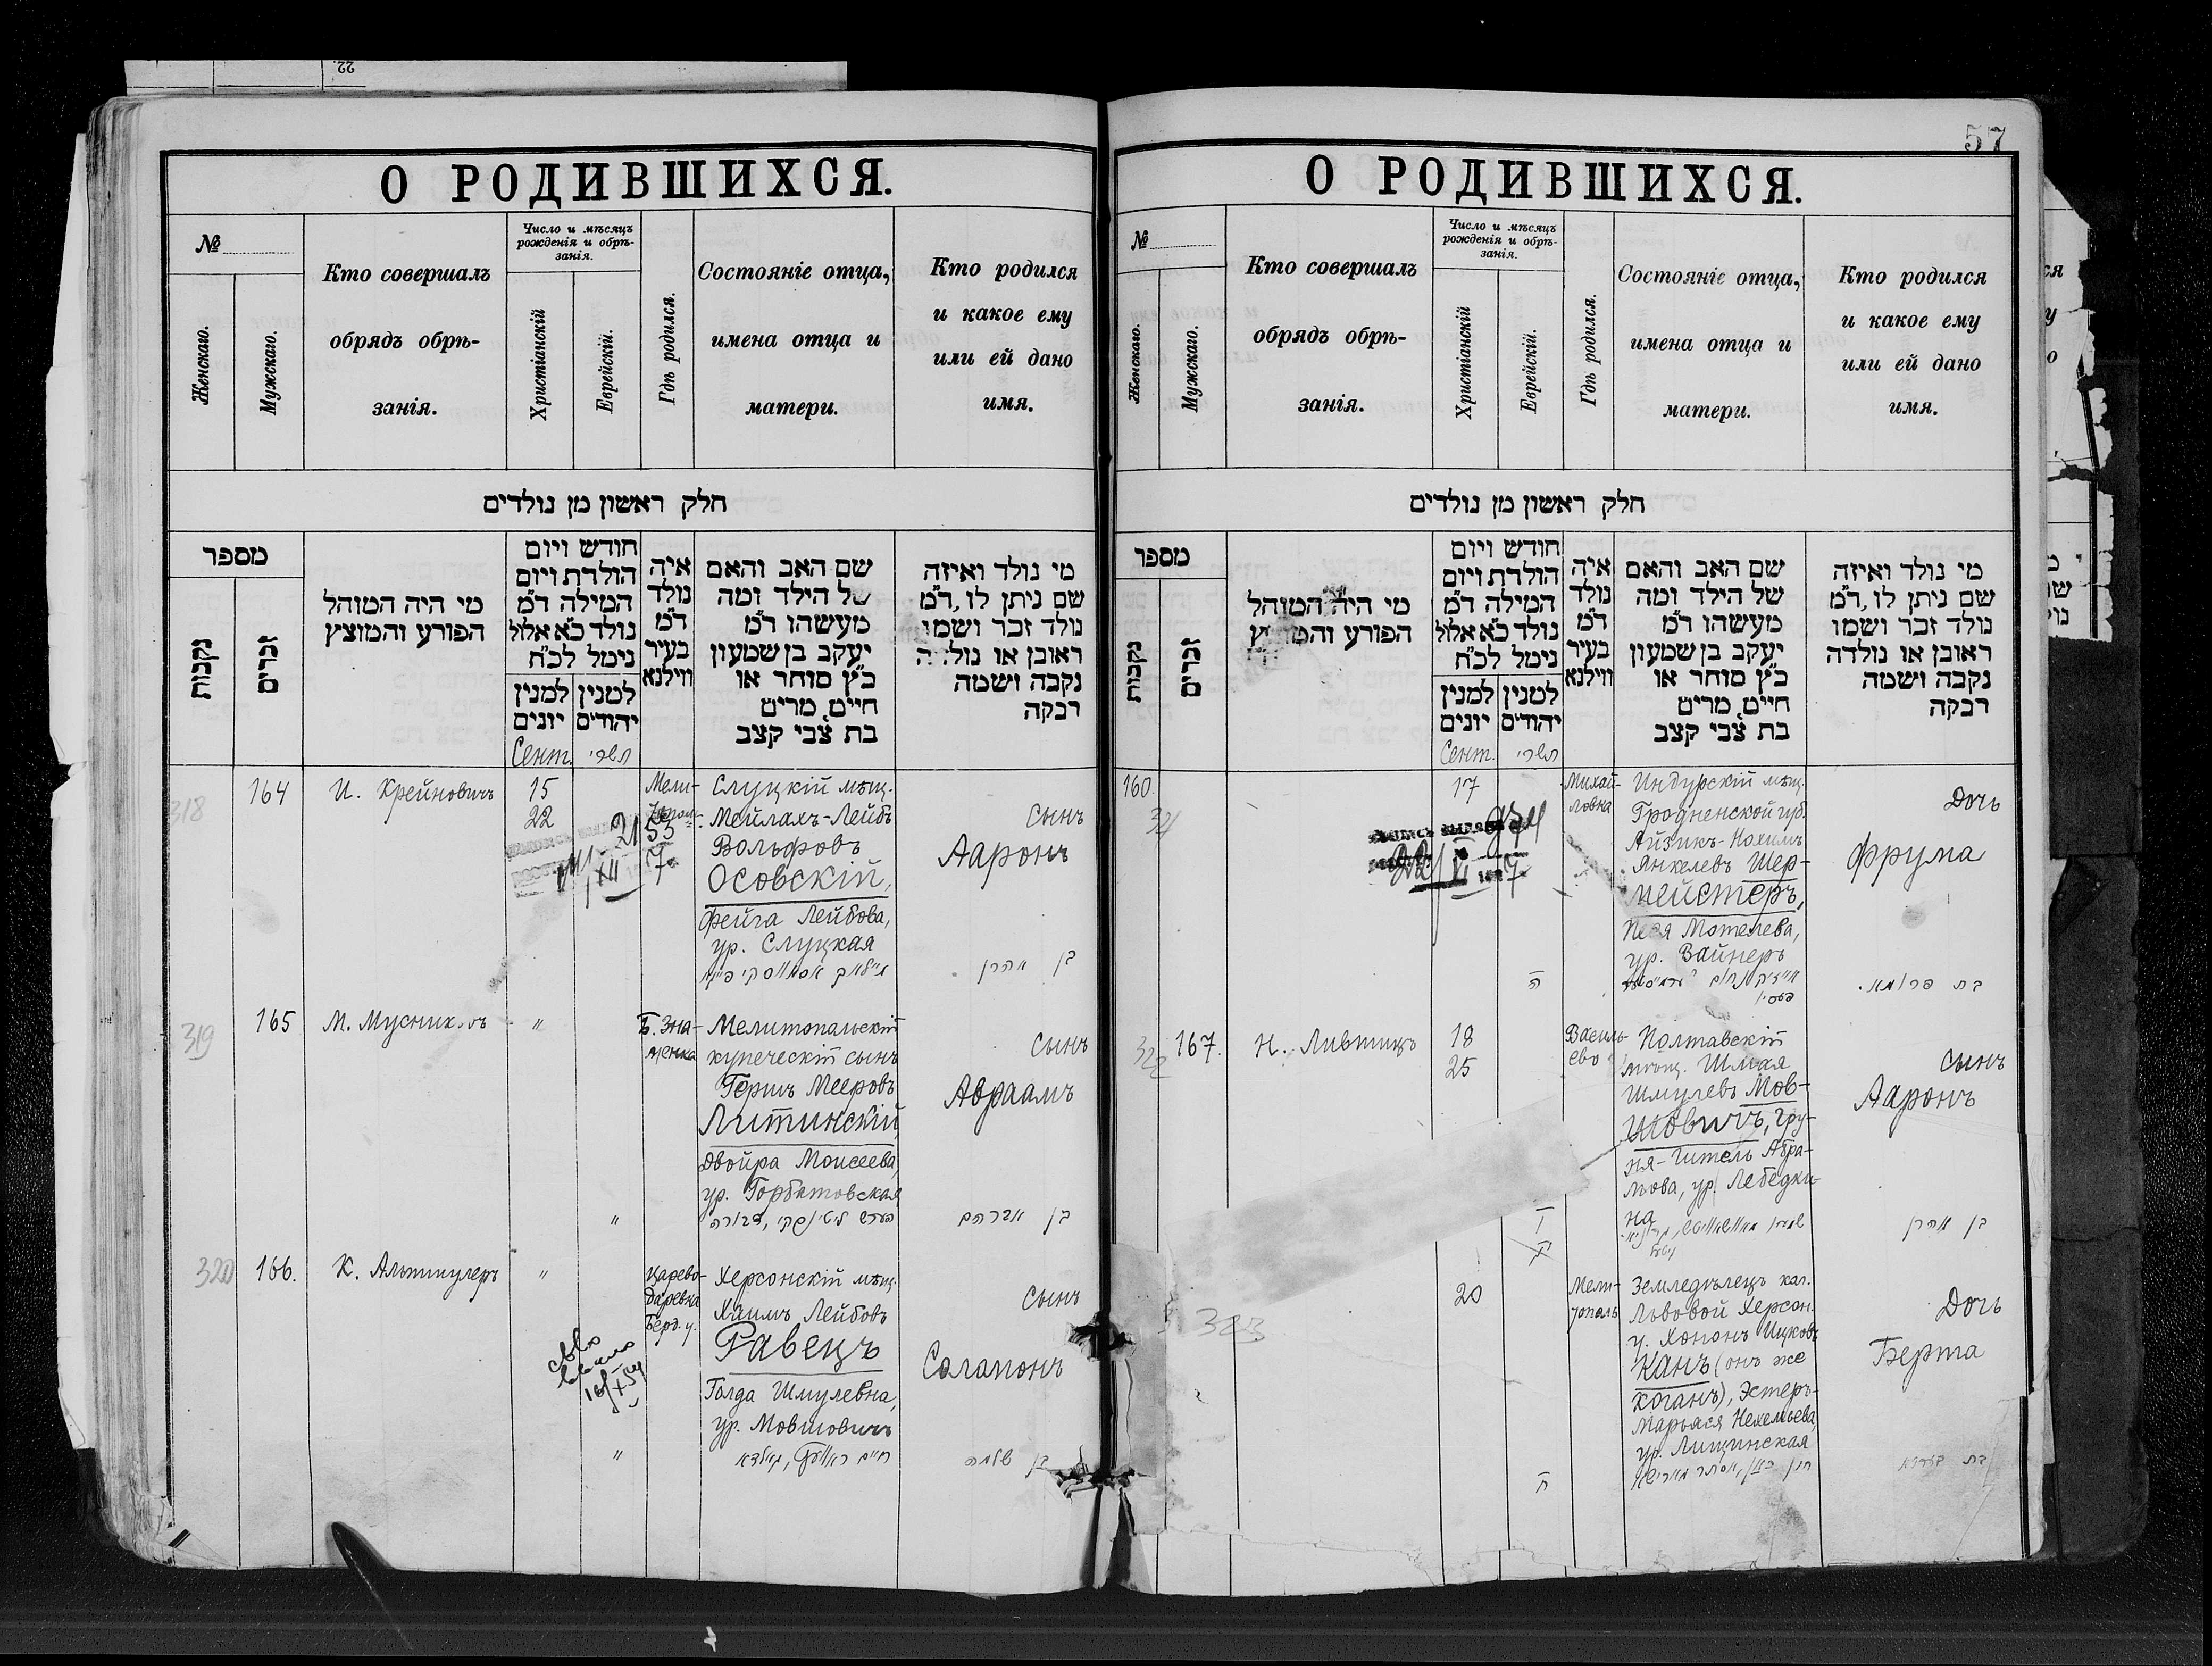 22.
О РОДИВШИХСЯ.
№
Женскаго.
Мужскаго.
Кто совершалъ
обрядъ обрѣ-
занія.
Число и мѣсяцъ
рожденія и обрѣ-
занія.
Христіанскій
Еврейскій.
Гдѣ родился.
Состояніе отца,
имена отца и
матери.
Кто родился
и какое ему
или ей дано
имя.
חלק ראשון מן נולדים
מספר
נקבות
זכרים
מי היה המוהל
הפורע והמוצץ
חודש ויום
הולדת ויום
המילה ד״מ
נולד כ״א אלול
נימל לכ״ח
למנין
יונים
למנין
יהודים
איה
נולד
ד״מ
בעיר
ווילנא
שם האב והאם
של הילד ומה
מעשהו ד״מ
יעקב בן שמעון
כ״ץ סוחר או
חייט, מרים
בת צבי קצב
מי נולד ואיזה
שם ניתן לו, ד״מ
נולד זכר ושמו
ראובן או נולדה
נקבה ושמה
רבקה
Сент.
תשרי
318
164
И. Крейновичъ
15
22
2155
XII
7
Мели-
Слуцкій мѣщ.
Мейлахъ-Лейбъ
Вольфовъ
Осовскій,
Фейга Лейбова,
ур. Слуцкая
Сынъ
Ааронъ
בן אהרן
319
165
М. Мусник
"
Б. Зна-
менка
Мелитопальскій
купеческій сынъ
Гершъ Мееровъ
Литинскій,
Двойра Моисеева,
ур. Горбатовская
"
Сынъ
Авраамъ
בן אברהם
320
166.
К. Альтшулеръ
"
Царево-
даревка
Берд. у.
Херсонскій мѣщ.
Хаимъ Лейбовъ
Равецъ
Голда Шмулевна,
ур. Мовшовичъ
"
Сынъ
Саламонъ
בן שלמה
57
О РОДИВШИХСЯ.
№
Женскаго.
Мужскаго.
Кто совершалъ
обрядъ обрѣ-
занія.
Число и мѣсяцъ
рожденія и обрѣ-
занія.
Христіанскій
Еврейскій.
Гдѣ родился.
Состояніе отца,
имена отца и
матери.
Кто родился
и какое ему
или ей дано
имя.
חלק ראשון מן נולדים
מספר
נקבות
זכרים
מי היה המוהל
הפורע
חודש ויום
הולדת ויום
המילה ד״מ
נולד כ״א אלול
נימל לכ״ח
למנין
יונים
למנין
יהודים
איה
נולד
ד״מ
בעיר
ווילנא
שם האב והאם
של הילד ומה
מעשהו ד״מ
יעקב בן שמעון
כ״ץ סוחר או
חייט, מרים
בת צבי קצב
מי נולד ואיזה
שם ניתן לו, ד״מ
נולד זכר ושמו
ראובן או נולדה
נקבה ושמה
רבקה
Сент.
תשרי
160.
321
17
ה
Михай-
ловка
Индурскій мѣщ.
Гродненской губ.
Айзикъ-Нохимъ
Янкелевъ Шер-
мейстеръ,
Песя Мотелева,
ур. Вайнеръ
Дочь
Фрума
בת פרומא.
322
167.
Н. Лившицъ
18
25
ו
Василь-
ево
Полтавскій
мѣщ. Шмая
Шмулевъ Мов-
шовичъ, Гру-
ня-Гитель Абра-
мова, ур. Лебедки-
на
Сынъ
Ааронъ
בן אהרן
323
20
ח
Мели-
тополь
Земледѣлецъ кол.
Львовой Херсон.
у. Хононъ Ицковъ
Канъ (онъ же
Коганъ), Эстеръ-
Марьяся Нехемьева,
ур. Лищинская
Дочь
Берта
בת בערטא